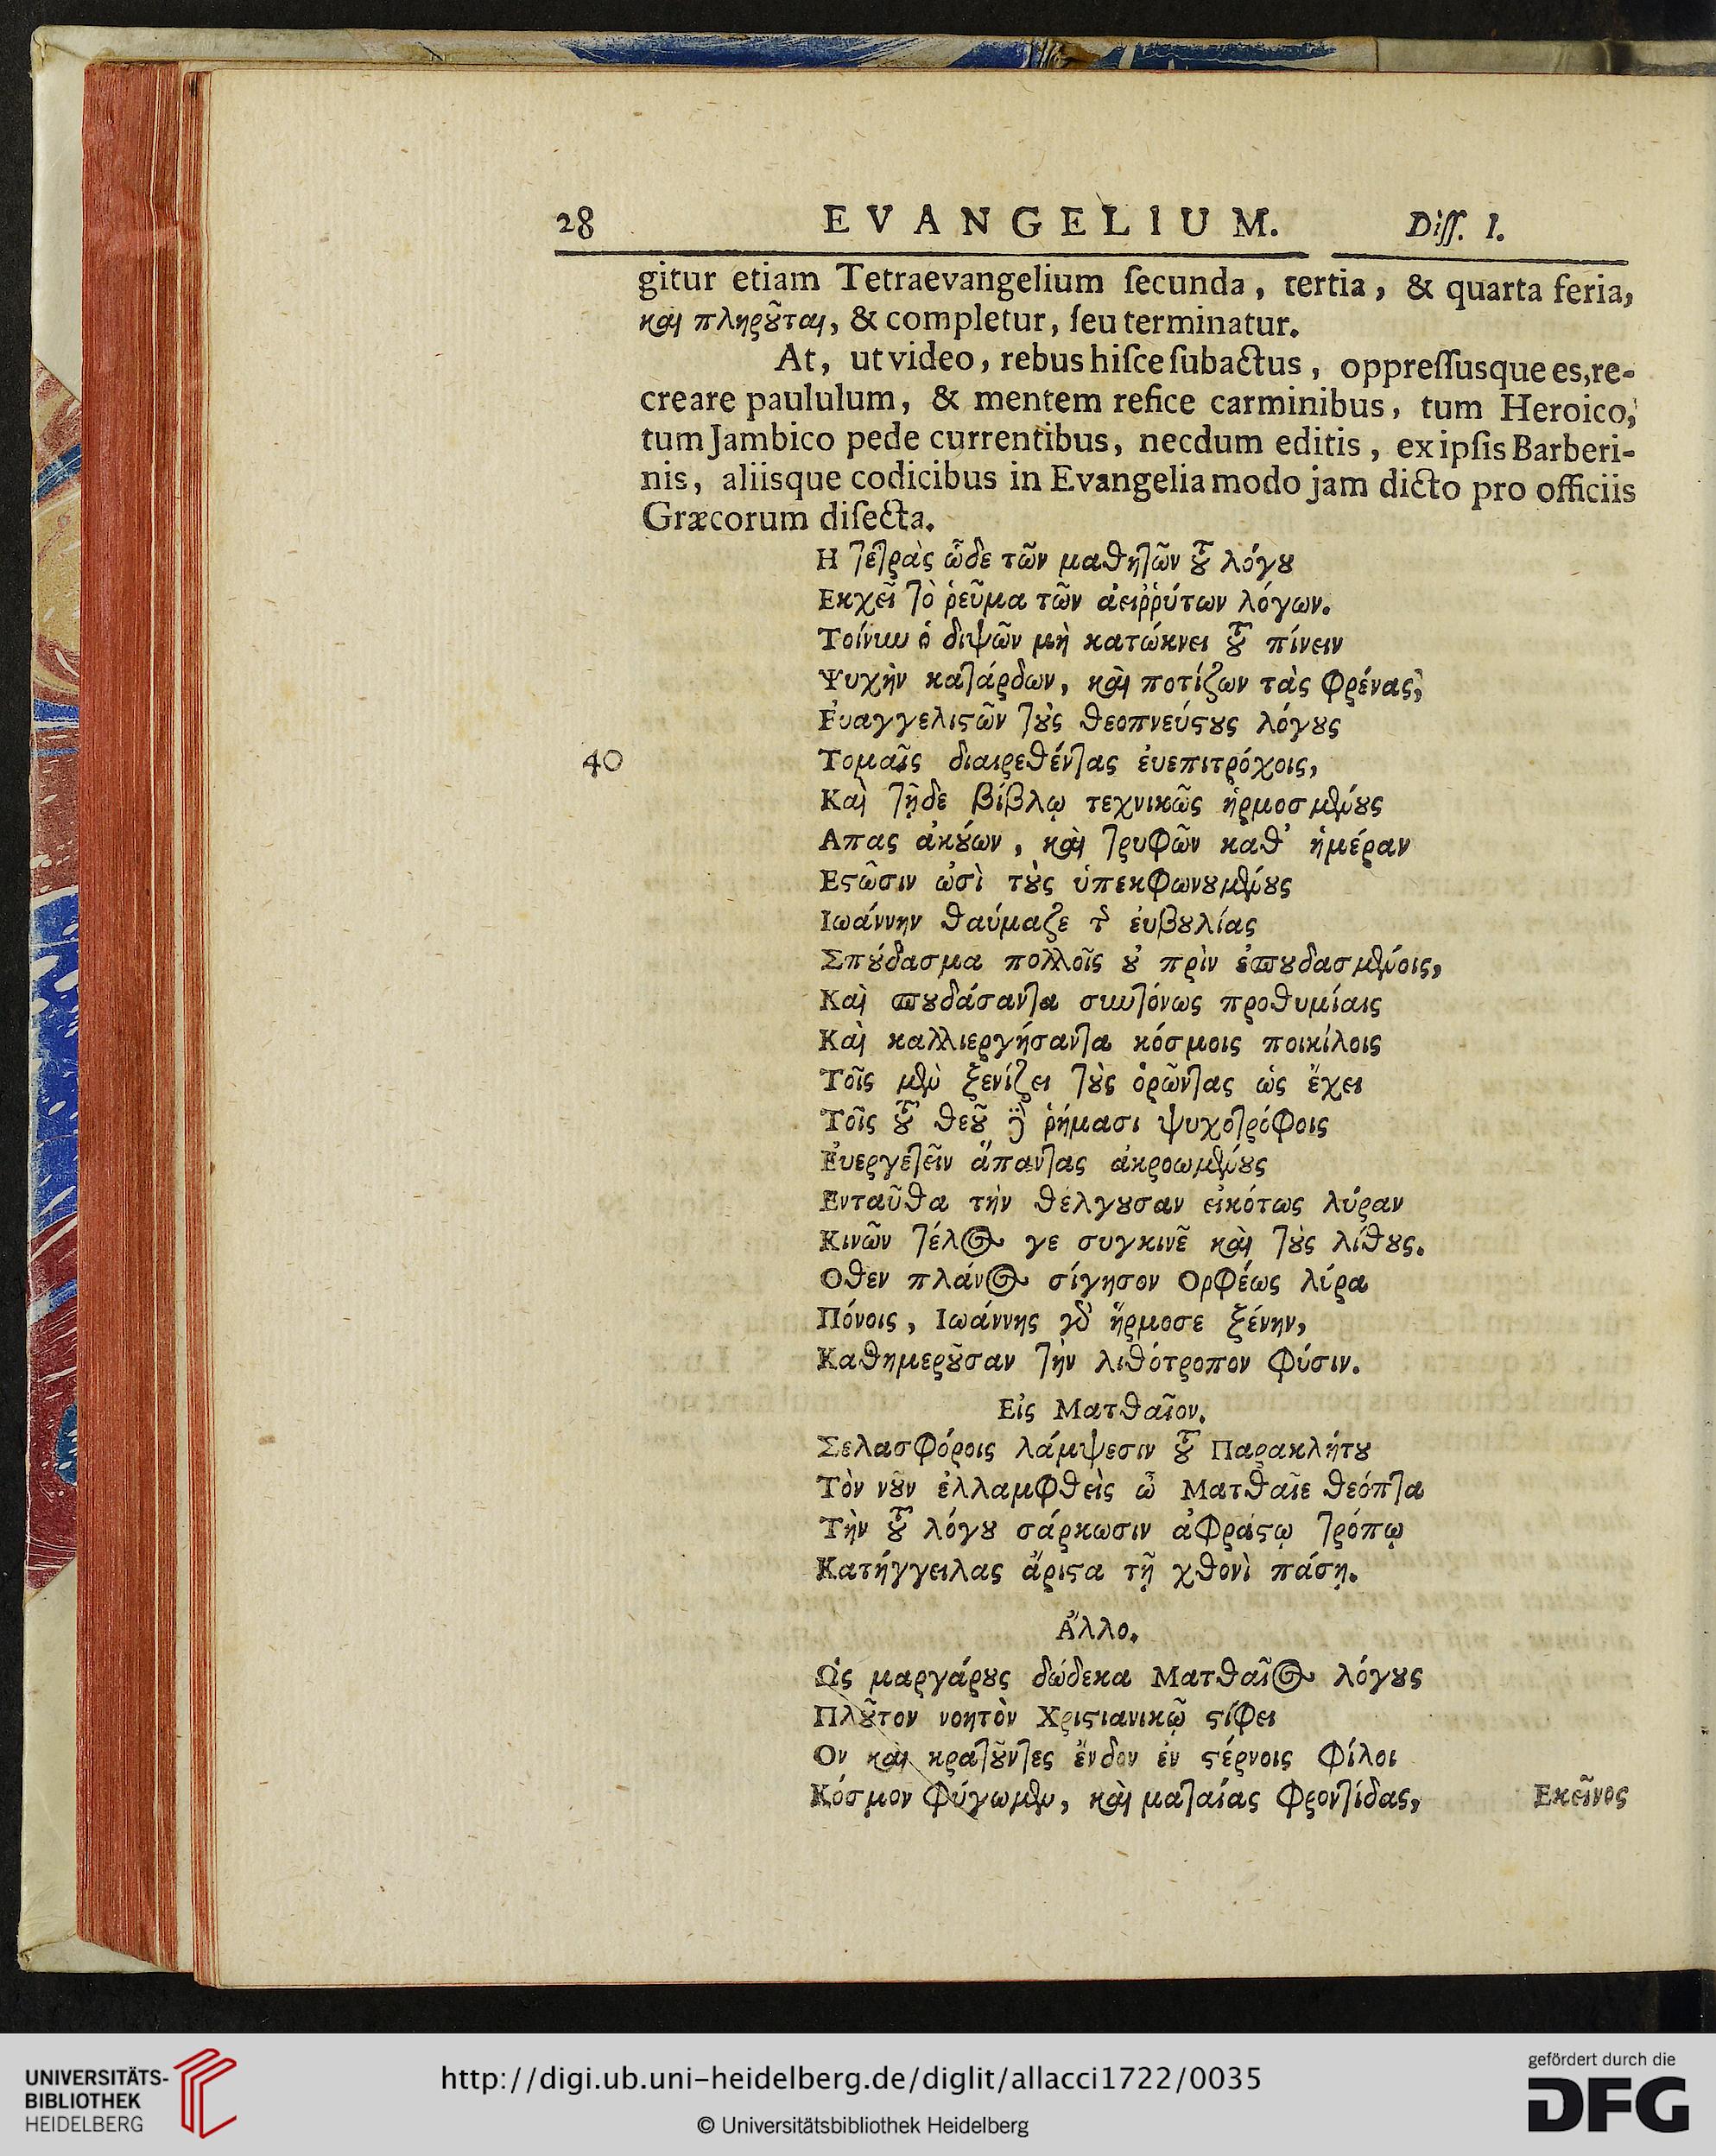 28 EVANGELIUM. Diſſ. I.
gitur etiam Tetraevangelium ſecunda, tertia, & quarta feria,
καὶ πληροῦται, & completur, ſeu terminatur.
At, ut video, rebus hiſce ſubactus, oppreſſusque es, re-
creare paululum, & mentem refice carminibus, tum Heroico,
tum Jambico pede currentibus, necdum editis, ex ipſis Barberi-
nis, aliisque codicibus in Evangelia modo jam dicto pro officiis
Græcorum diſecta.
Η τετρὰς ὧδε τῶν μαθητῶν τȣ͂ λόγȣ
Εκχεῖ τὸ ῥεῦμα τῶν ἀειῤῥύτων λόγων.
Τοίνυν ὁ διψῶν μὴ κατώκνει τȣ͂ πίνειν
Ψυχὴν κατάρδων, καὶ ποτίζων τὰς φρένας,
Εὐαγγελιϛῶν τȣ̀ς θεοπνεύϛȣς λόγȣς
40 Τομαῖς διαιρεθέντας ἐυεπιτρόχοις,
Καὶ τῇδε βίβλῳ τεχνικῶς ἡρμοσμένȣς
Απας ἀκȣ́ων, καὶ τρυφῶν καθ᾽ ἡμέραν
Εϛῶσιν ὠσὶ τȣ̀ς ὑπεκφωνȣμένȣς
Ιωάννην θαύμαζε τῆς ἐυβȣλίας
Σπȣ́δασμα πολλοῖς ȣ̓ πρὶν ἐσπȣδασμένοις,
Καὶ σπȣδάσαντα συντόνως προθυμίαις
Καὶ καλλιεργήσαντα κόσμοις ποικίλοις
Τοῖς μὲν ξενίζει τȣ̀ς ὁρῶντας ὡς ἔχει
Τοῖς τȣ͂ θεȣ͂ δὲ ῥήμασι ψυχοτρόφοις
Εὐεργετεῖν ἅπαντας ἀκροωμένȣς
Ενταῦθα τὴν θέλγȣσαν εἰκότως λύραν
Κινῶν τέλος γε συγκινεῖ καὶ τȣ̀ς λίθȣς.
Οθεν πλάνος σίγησον Ορφέως λύρα
Πόνοις, Ιωάννης γὰρ ἥρμοσε ξένην,
Καθημερȣ͂σαν τὴν λιθότροπον φύσιν.
Εἰς Ματθαῖον.
Σελασφόροις λάμψεσιν τȣ͂ Παρακλήτȣ
Τὸν νȣ͂ν ἐλλαμφθεὶς ὦ Ματθαῖε θεόπτα
Τὴν τȣ͂ λόγȣ σάρκωσιν ἀφράϛῳ τρόπῳ
Κατήγγειλας ἄριϛα τῇ χθονὶ πάσῃ.
Ἄλλο.
Ως μαργάρȣς δώδεκα Ματθαῖος λόγȣς
Πλȣ͂τον νοητὸν Χριϛιανικῷ ϛίφει
Ον καὶ κρατȣ͂ντες ἔνδον ἐν ϛέρνοις φίλοι
Κόσμον φύγωμεν, καὶ ματαίας φροντίδας,
Εκεῖνος
UNIVERSITÄTS-
BIBLIOTHEK
HEIDELBERG
http://digi.ub.uni-heidelberg.de/diglit/allacci1722/0035
© Universitätsbibliothek Heidelberg
gefördert durch die
DFG